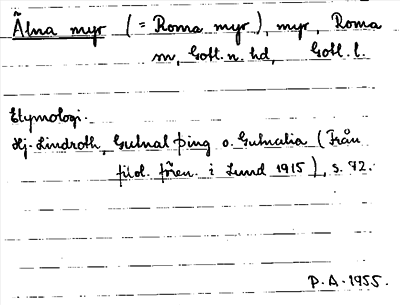 Älna myr (= Roma myr), myr, Roma
sn, Gotl. n. hd, Gotl. l.
Etymologi:
Hj. Lindroth, Gutnal þing o. Gutnalia (Från
filol. fören. i Lund 1915), s. 72.
P.A. 1955.